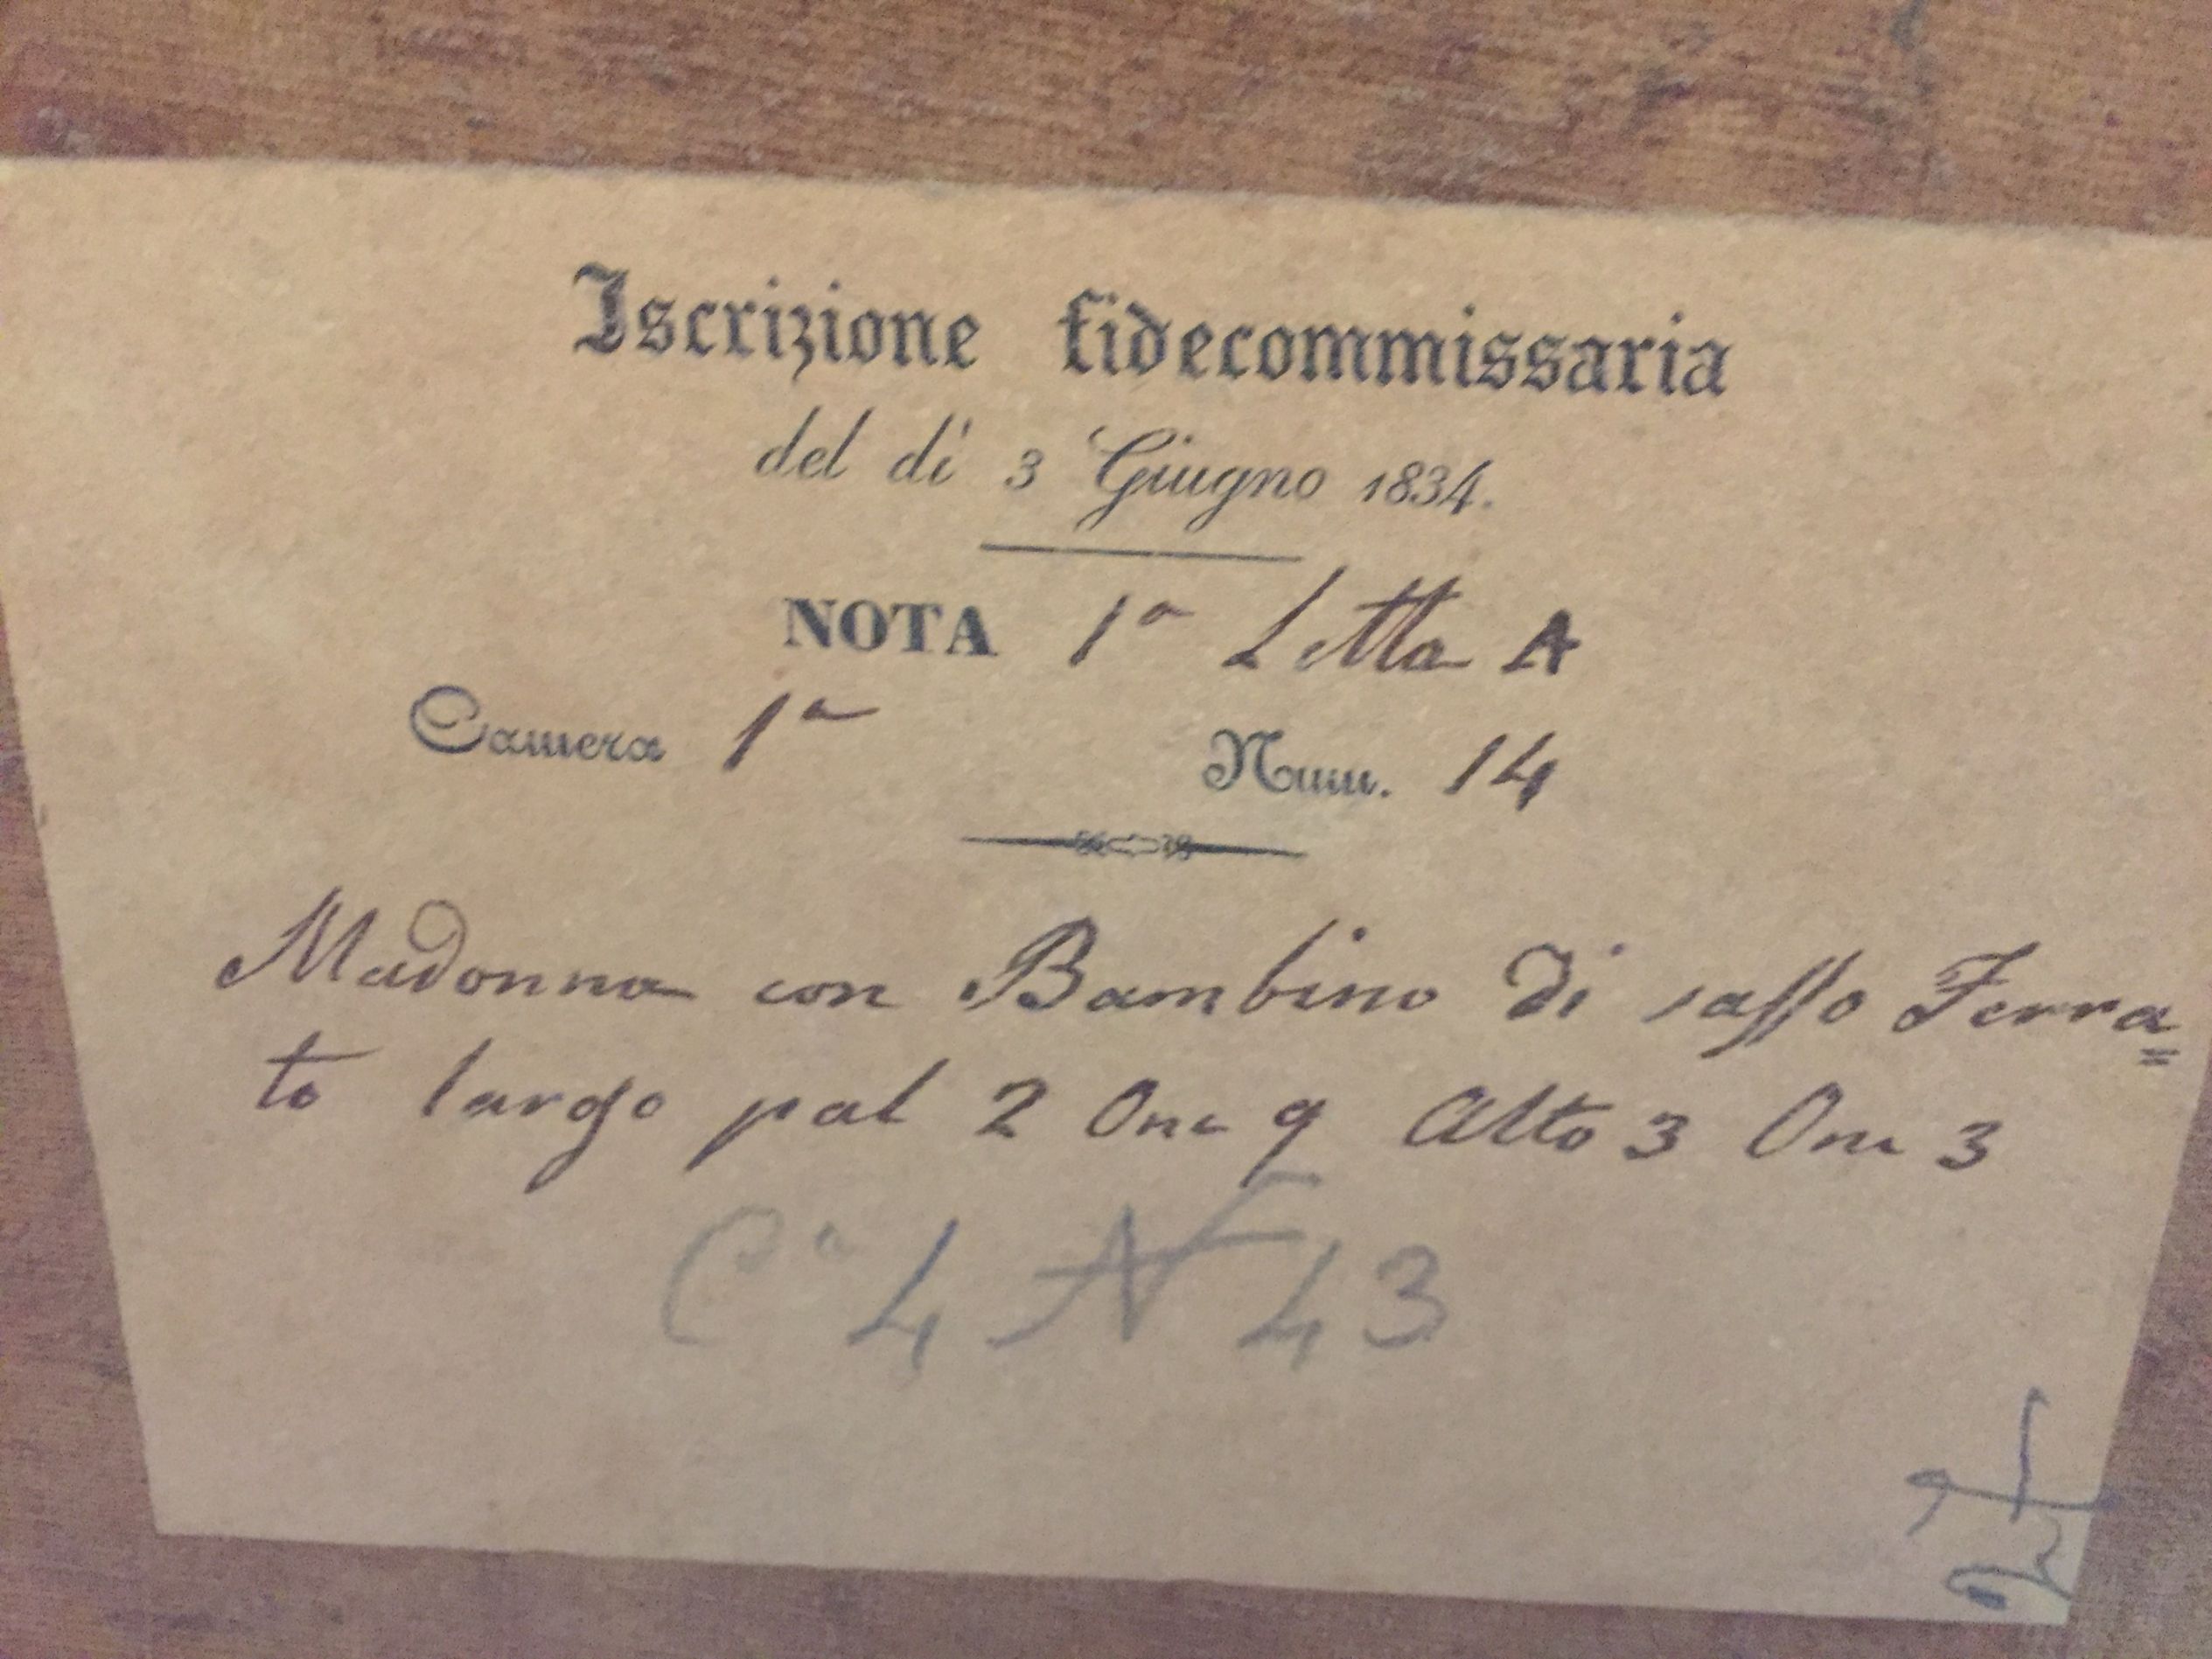 Iscrizione fidecommissaria
del dì 3 Giugno 1834.
NOTA 1ª Letta A
Camera 1ª Num. 14
Madonna con Bambino di sasso Ferra=
to largo pal 2 Onc 9 Alto 3 Onc 3
Cª 4 N 43
27